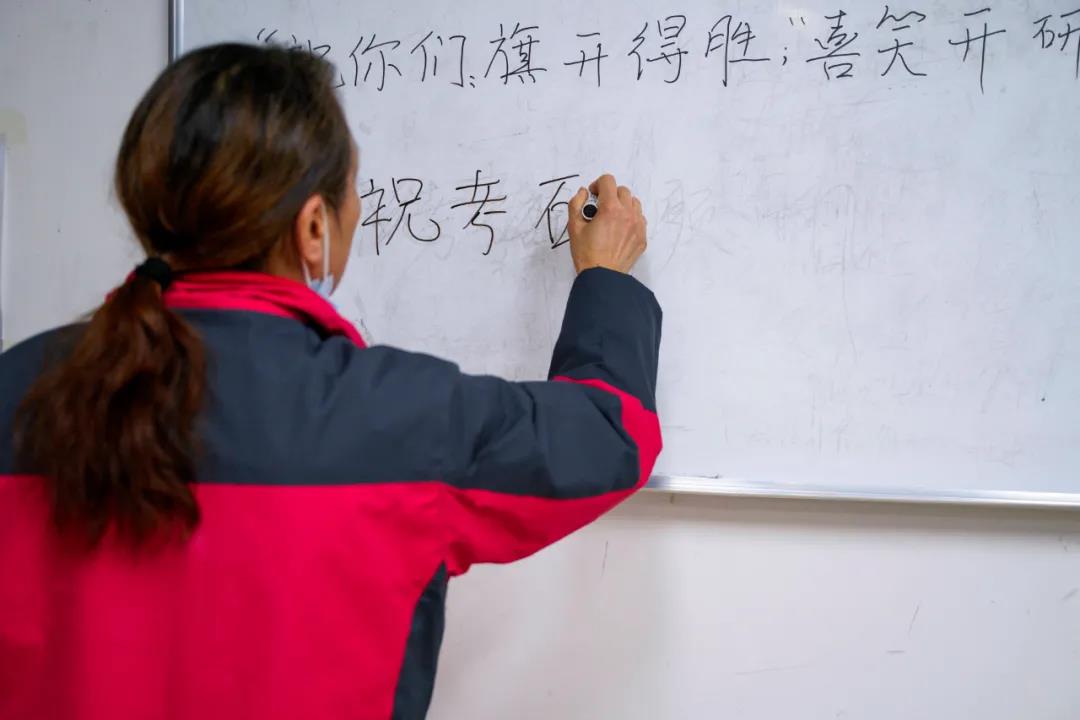 “祝你们、旗开得胜；”喜笑开研
祝考石